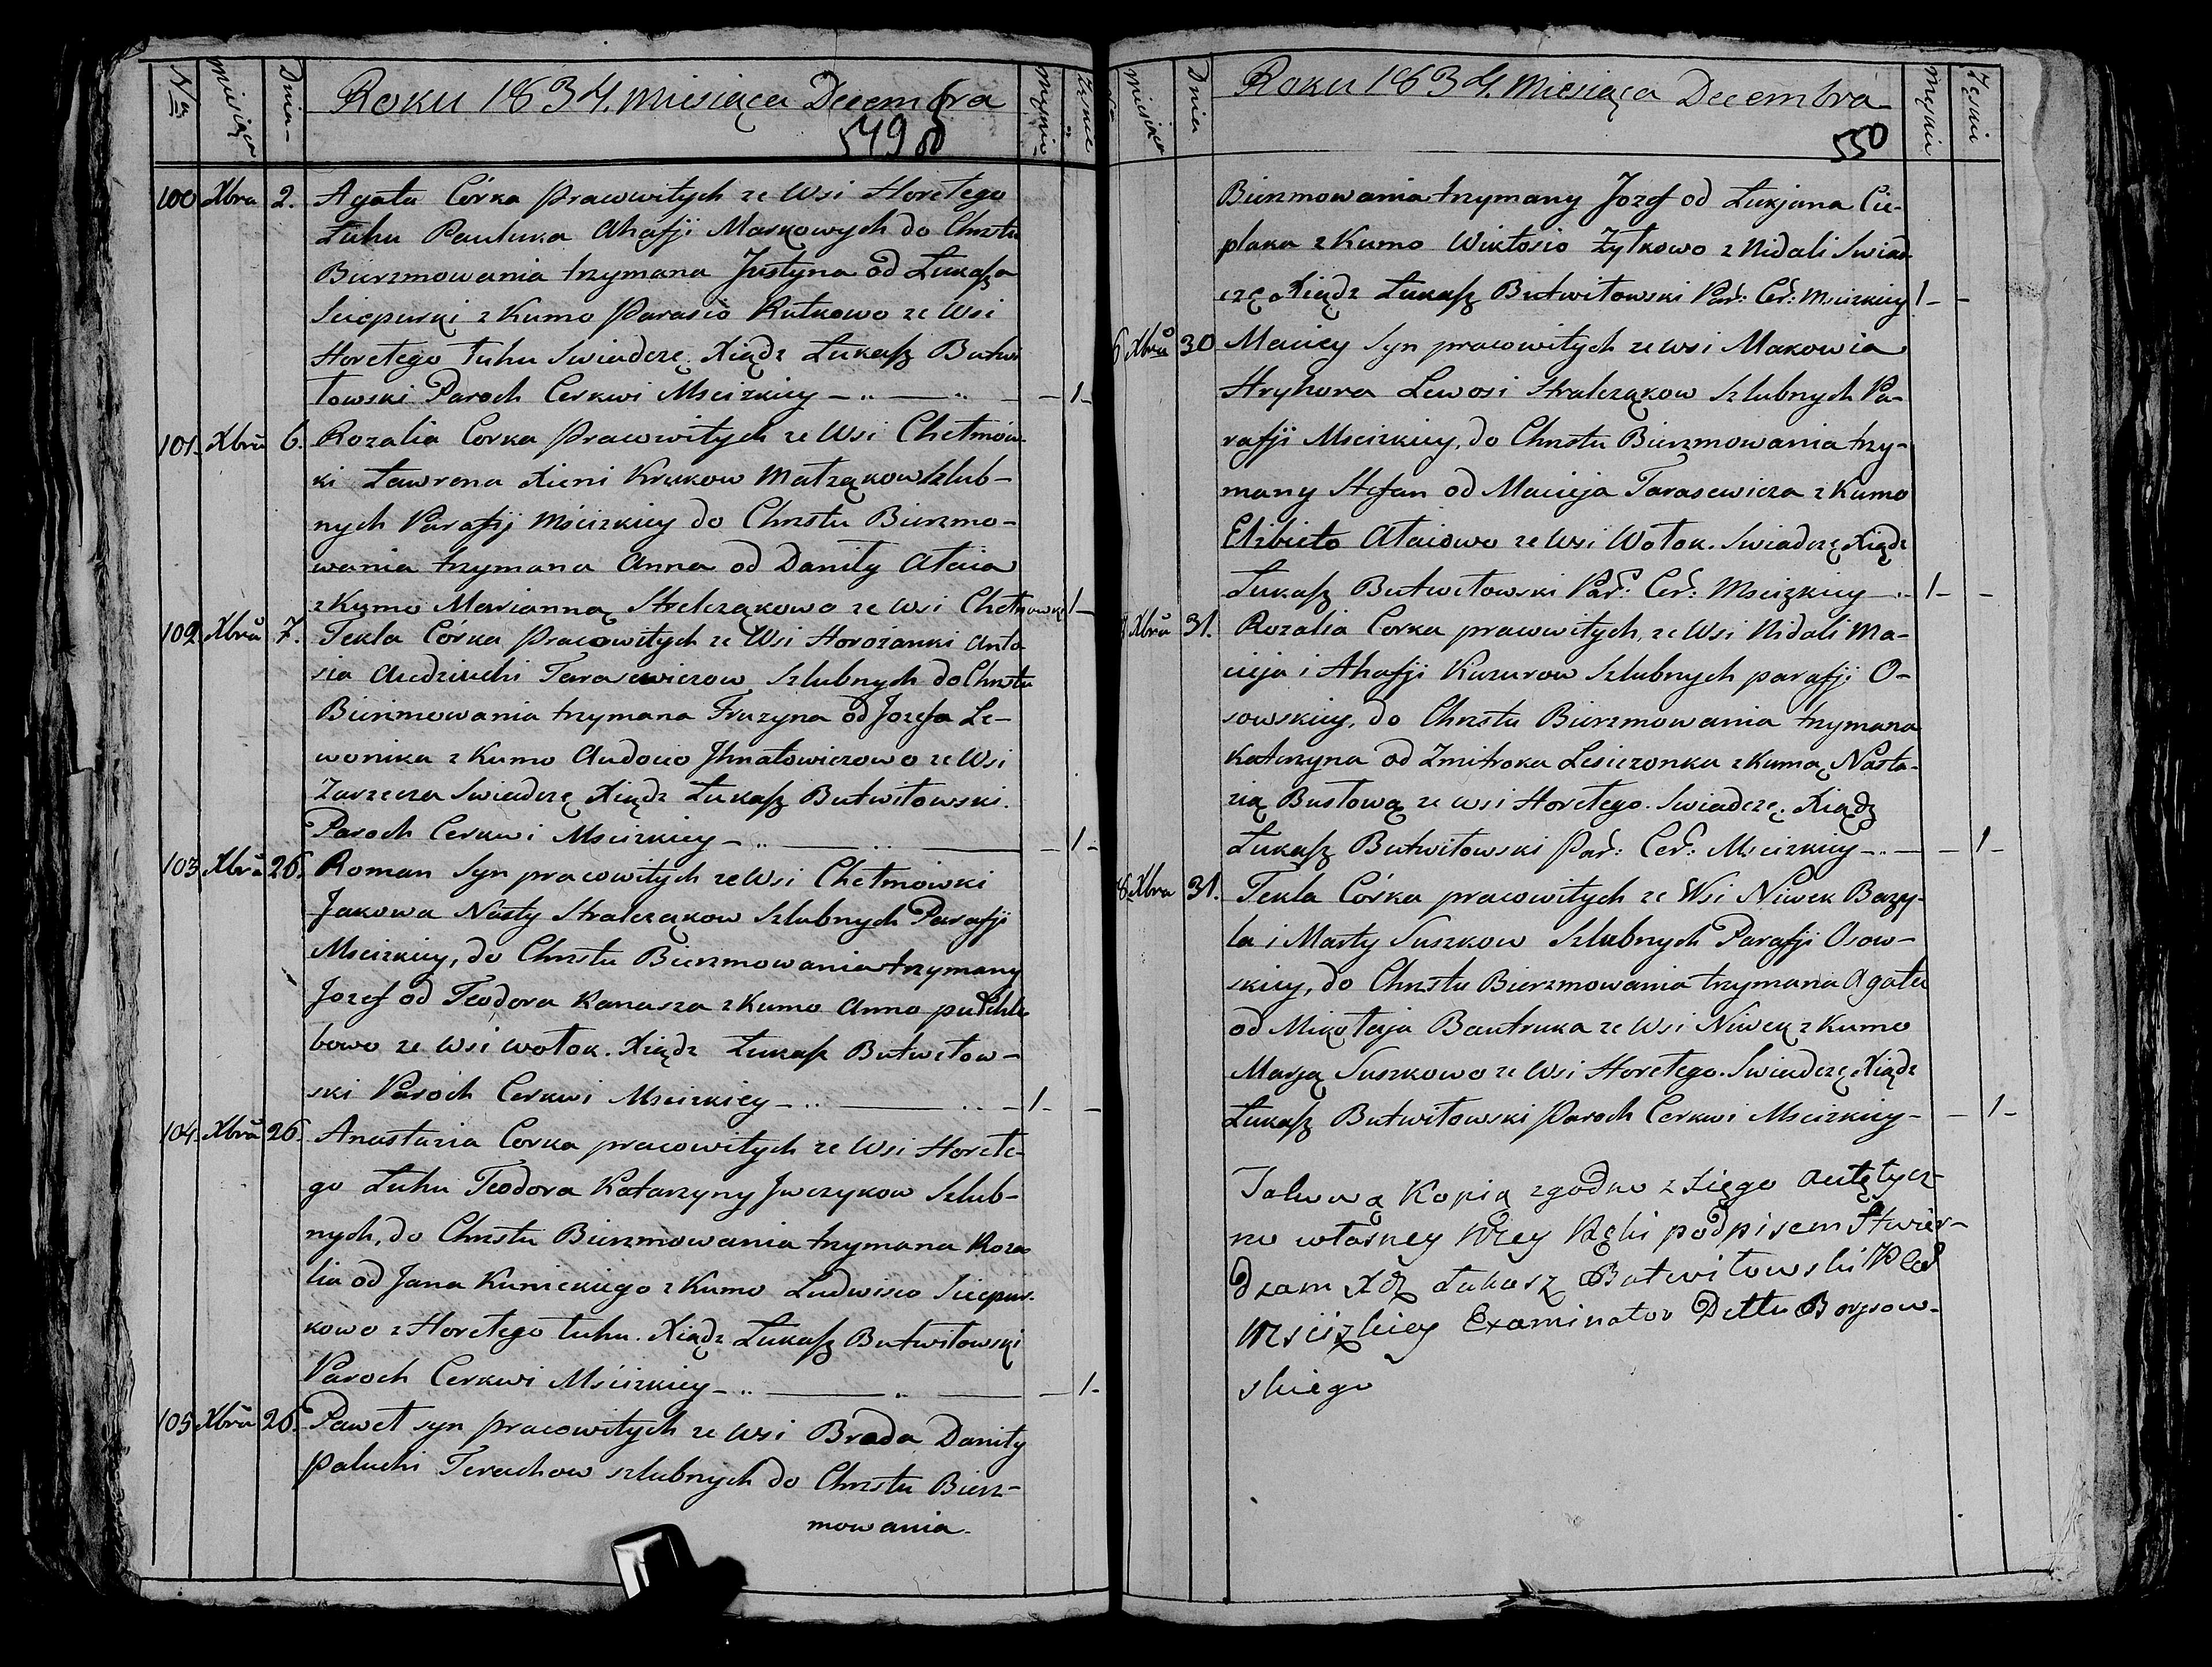 Nro Miesiąca Dnia Roku 1834. Miesiąca Decembra Męzkie Żęńskie
549
100 Xbra 2. Agata Córka Pracowitych ze Wsi Horełego
Łuhu Pauluka Ahafji Maskowych do Chrztu
Bierzmowania trzymana Justyna od Łukasza
Sciepurki z Kumo Parasio Rutkowo ze Wsi
Horełego Łuhu Swiadczę Xiądz Łukasz Butwi
łowski Paroch Cerkwi Mscizkiey 1
101. Xbra 6. Rozalia Corka Pracowitych ze Wsi Chełmow
ki Ławrena Xieni Krukow Matzakow Szlub-
nych Parafij Mścizkiey do Chrztu Bierzmo-
wania trzymana Anna od Daniły Ataia
z Kumo Marianną Strelcząkowo ze Wsi Chełmowki 1
102 Xbra 7. Tekla Córka Pracowitych ze Wsi Horożanki Anto
sia Audziuchi Tarasewiczow Szlubnych do Chrztu
Bierzmowania trzymana Fruzyna od Jozefa Le-
wonika z Kumo Audocio Jhnatowiczowo ze Wsi
Zarzecza Swiadczę Xiądz Łukasz Butwiłowski
Paroch Cerkwi Mscizkiey 1
103 Xbra 26. Roman Syn pracowitych ze Wsi Chełmowki
Jakowa Nasty Stralczakow Szlubnych Parafji
Mscizkiey, do Chrztu Bierzmowania trzymany
Jozef od Teodora Kanasza z Kumo Anno
bowo ze Wsi Wołok. Xiądz Łukasz Butwiłow-
ski Paroch Cerkwi Mscizkiey 1
104. Xbra 26. Anastazia Corka pracowitych ze Wsi Horełe-
go Łuhu Teodora Katarzyny Jwczykow Szlub-
nych, do Chrztu Bierzmowania trzymana Roza
lia od Jana Kunickiego z Kumo Ludwisio Sciepur-
kowo z Horełego Łuhu. Xiądz Łukasz Butwiłowski
Paroch Cerkwi Mścizkiey 1
105 Xbra 26. Paweł syn pracowitych ze Wsi Broda Daniły
Paluchi Terechow szlubnych do Chrztu Bierz-
mowania
Miesiąca Dnia Roku 1834. Miesiąca Decembra Męzkie Żęńskie
550
Bierzmowania trzymany Jozef od Łukjana Cie-
plaka z Kumo Wiktosio Żytkowo z Nidali Swiad
czę Xiądz Łukasz Butwiłowski Par: Cer: Mscizkiey 1
6 Xbra 30 Maciey Syn pracowitych ze Wsi Makowia
Hryhora Lewosi Stralczakow Szlubnych Pa-
rafji Mscizkiey, do Chrztu Bierzmowania trzy-
many Stefan od Macieja Tarasewicza z Kumo
Elzbieto Ataiowo ze Wsi Wołok. Swiadczę Xiądz
Łukasz Butwiłowski Par: Cer: Mscizkiey 1
Xbra 31. Rozalia Corka pracowitych, ze Wsi Nidali Ma-
cieja i Ahafji Kuzurow Szlubnych parafji O-
sowskiey, do Chrztu Bierzmowania trzymana
Katarzyna od Zmitroka Lesiczonka z Kumą Nasta-
zią Bustową ze wsi Horełego. Swiadczę Xiądz
Łukasz Butwiłowski Par: Cer: Mscizkiey 1
8 Xbra 31. Tekla Córka pracowitych ze Wsi Niwek Bazy-
la i Marty Suszkow Szlubnych Parafji Osow-
skiey, do Chrztu Bierzmowania trzymana Agata
od Mikołaja Bautruka ze Wsi Niwek z Kumo
Marją Suszkowo ze Wsi Horełego. Swiadczę Xiądz
Łukasz Butwiłowski Paroch Cerkwi Mscizkiey 1
Takową Kopią zgodno z Xięgo Autętycz-
no własney Mey Ręki podpisem Stwier-
dzam Xdz Łukasz Butwiłowski P Cer
Mscizkiey Examinator Dettu Borysow-
skiego